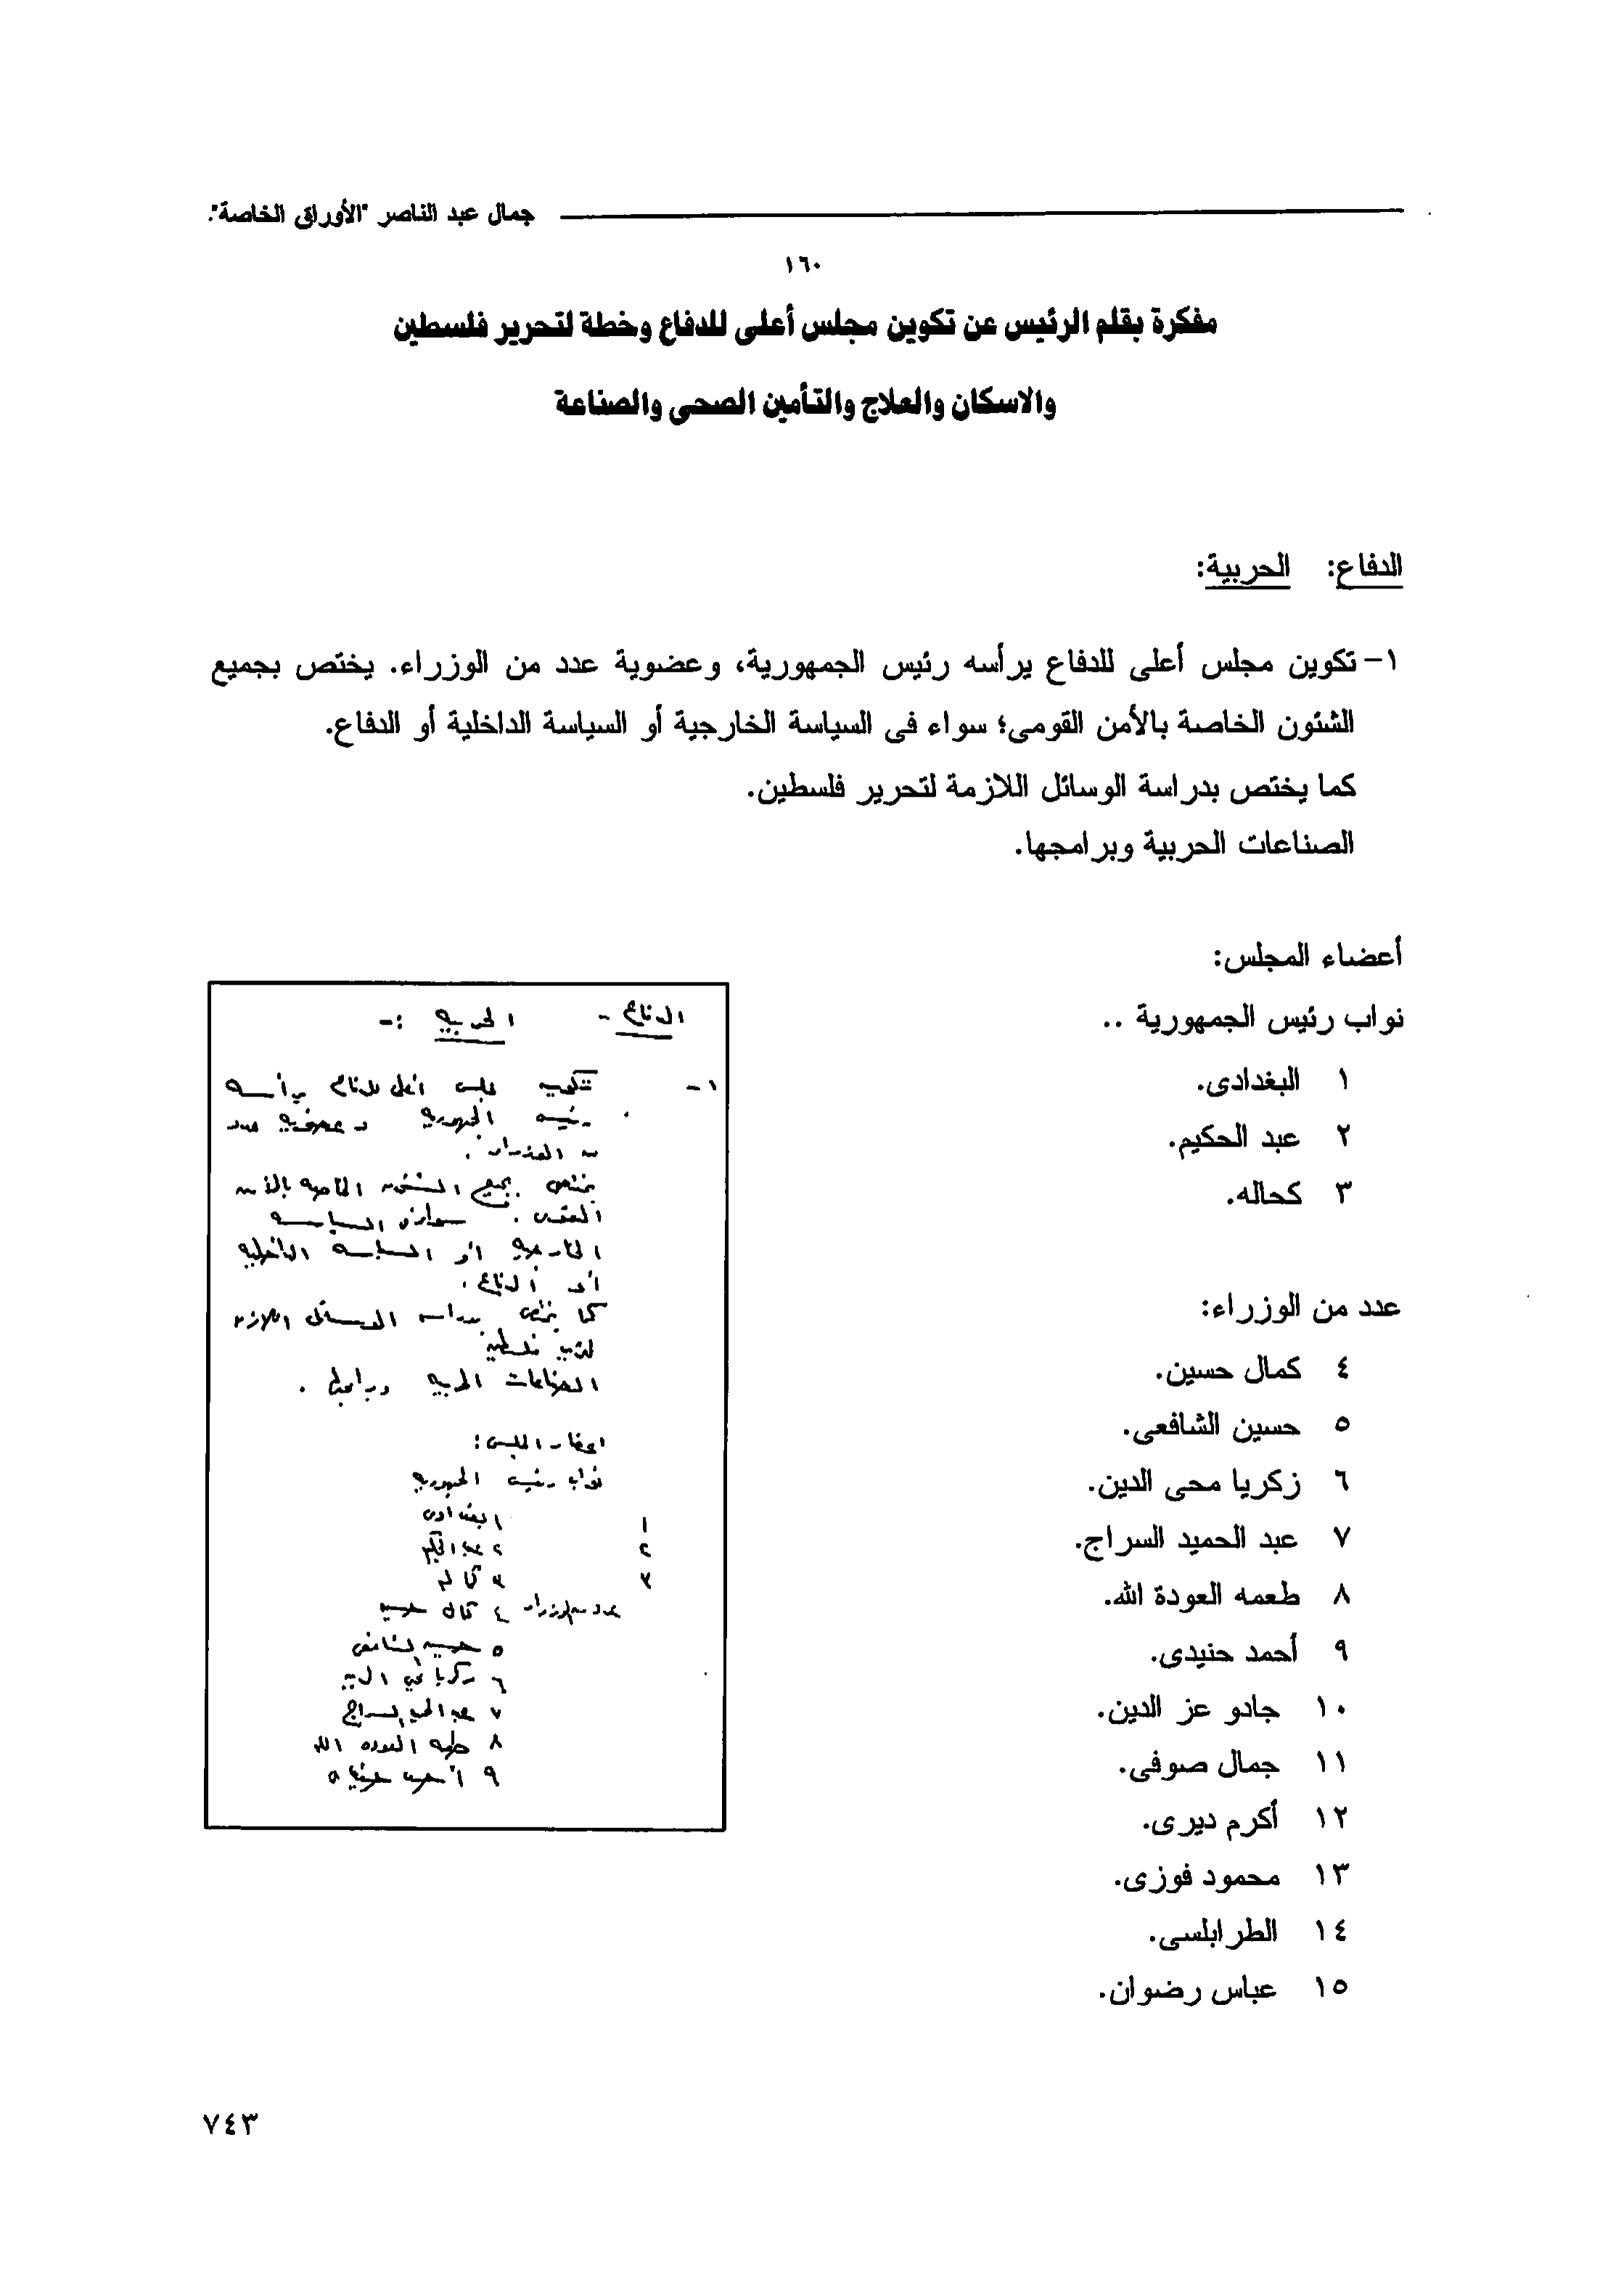 جمال عبد الناصر "الأوراق الخاصة".
١٦٠
مفكرة بقلم الرئيس عن تكوين مجلس أعلى للدفاع وخطة لتحرير فلسطين
والاسكان والعلاج والتأمين الصحى والصناعة
الدفاع: الحربية:
١- تكوين مجلس أعلى للدفاع يرأسه رئيس الجمهورية، وعضوية عدد من الوزراء. يختص بجميع
الشئون الخاصة بالأمن القومى؛ سواء فى السياسة الخارجية أو السياسة الداخلية أو الدفاع.
كما يختص بدراسة الوسائل اللازمة لتحرير فلسطين.
الصناعات الحربية وبرامجها.
أعضاء المجلس:
نواب رئيس الجمهورية ..
١ البغدادى.
٢ عبد الحكيم.
٣ كحاله.
عدد من الوزراء:
٤ كمال حسين.
٥ حسين الشافعى.
٦ زكريا محى الدين.
٧ عبد الحميد السراج.
٨ طعمه العودة الله.
٩ أحمد حنيدى.
١٠ جادو عز الدين.
١١ جمال صوفى.
١٢ أكرم ديرى.
١٣ محمود فوزى.
١٤ الطرابلسى.
١٥ عباس رضوان.
الدفاع - الحربيه :-
١- تكوين مجلس أعلى للدفاع يرأسه
رئيس الجمهوريه و عضويه عدد
من الوزراء .
يختص بجميع الشئون الخاصه بالأمن
القومى . سواء فى السياسه
الخارجيه أو السياسه الداخليه
أو الدفاع .
كما يختص بدراسه الوسائل اللازمه
لتحرير فلسطين
الصناعات الحربيه وبرامجها .
اعضاء المجلس :
نواب رئيس الجمهوريه
١ ١ البغدادى
٢ ٢ عبد الحكيم
٣ ٣ كحاله
عدد من الوزراء ٤ كمال حسين
٥ حسين الشافعى
٦ زكريا محى الدين
٧ عبد الحميد السراج
٨ طعمه العوده الله
٩ أحمد حنيدى
٧٤٣